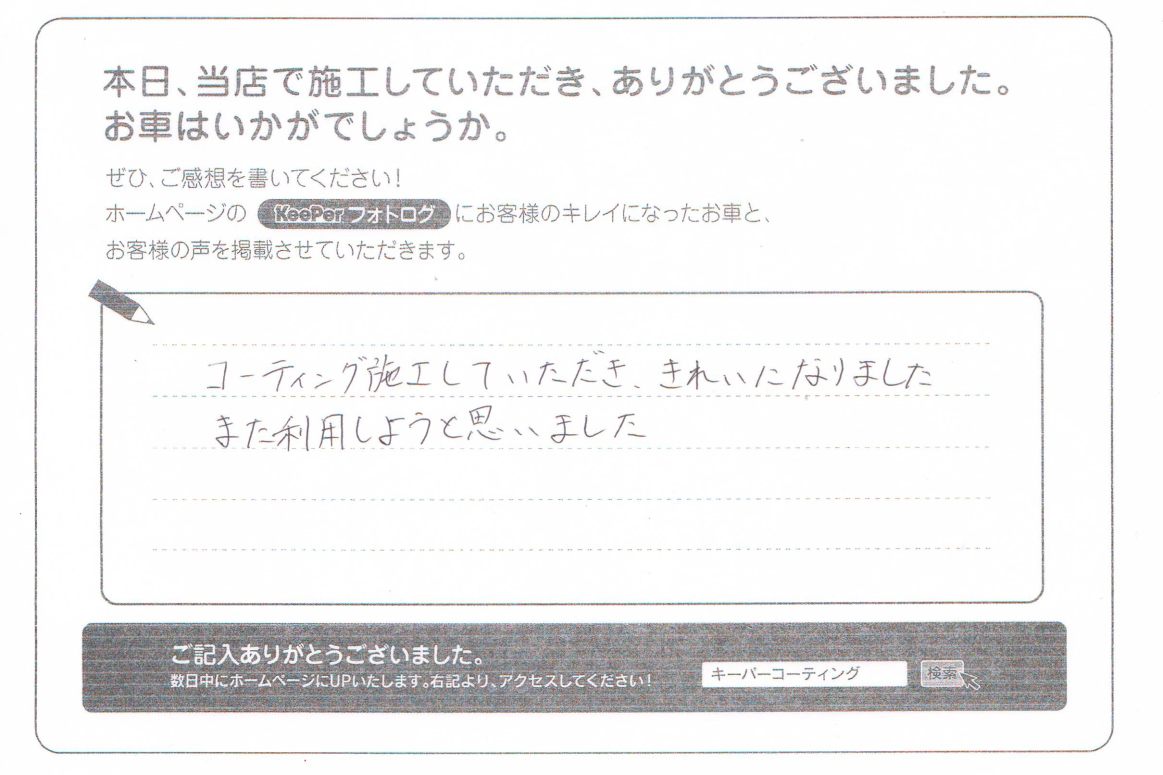 本日、当店で施工していただき、ありがとうございました。
お車はいかがでしょうか。
ぜひ、ご感想を書いてください!
ホームページの KeePer フォトログ にお客様のキレイになったお車と、
お客様の声を掲載させていただきます。
コーティング施工していただき、きれいになりました
また利用しようと思いました
ご記入ありがとうございました。
数日中にホームページにUPいたします。右記より、アクセスしてください!
キーパーコーティング 検索